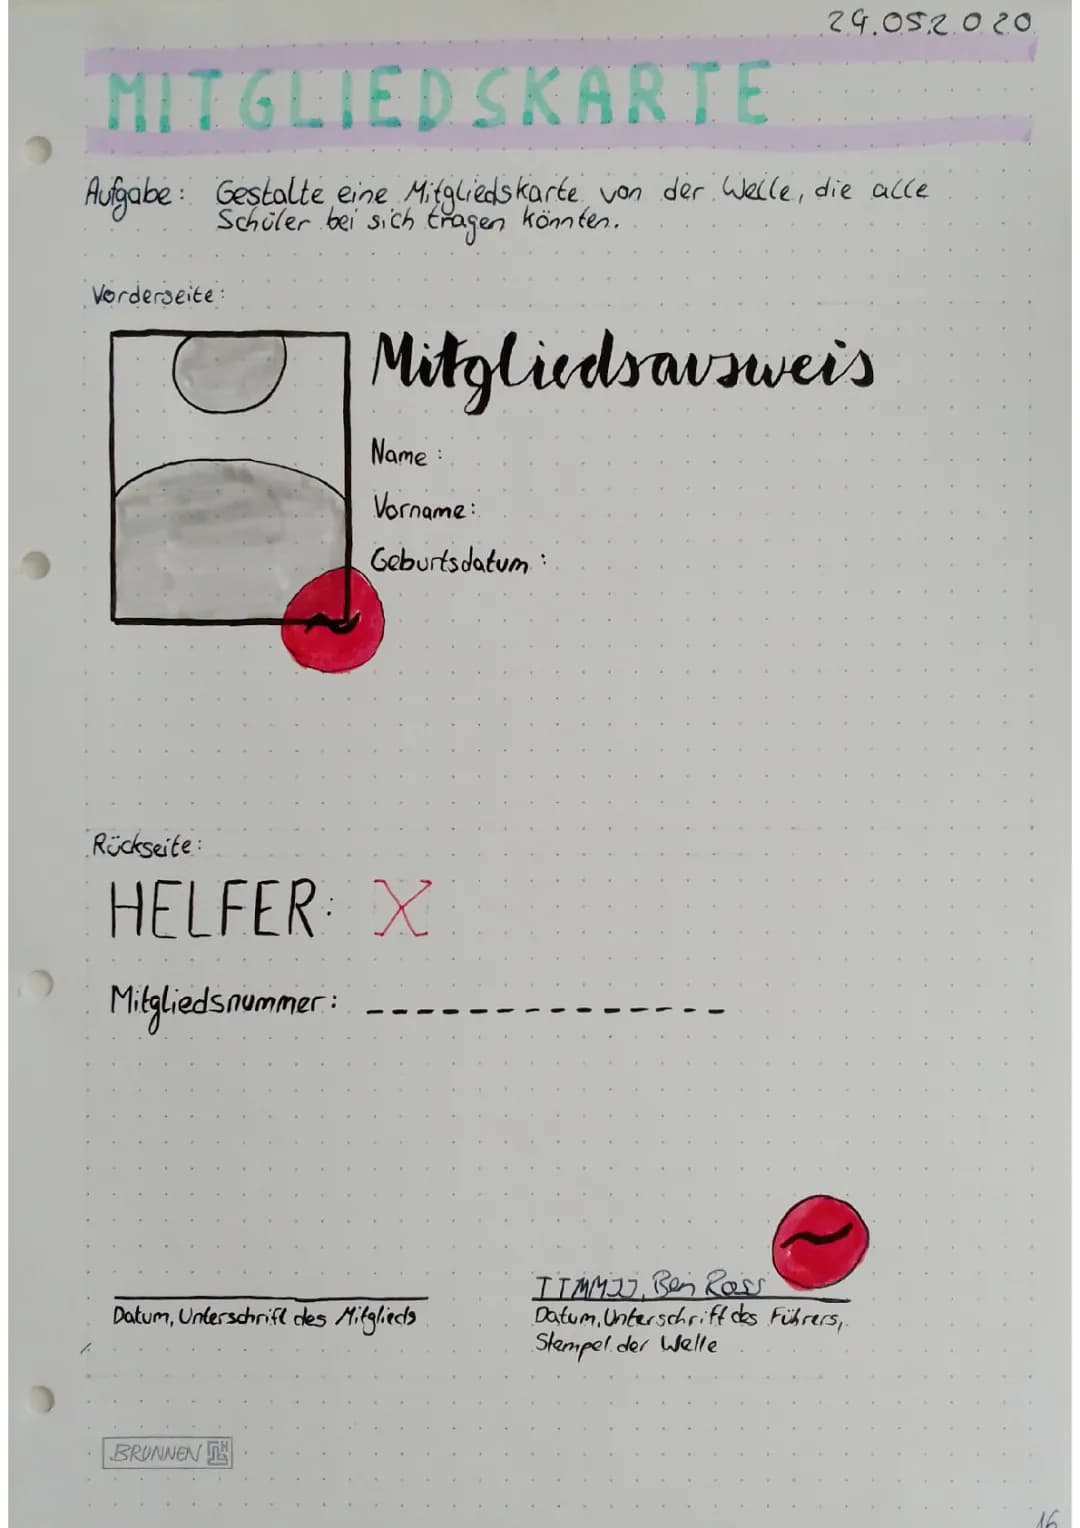 29.05.2020
MITGLIEDSKARTE
Aufgabe: Gestalte eine Mitgliedskarte von der Welle, die alle
Schüler bei sich tragen könnten.
Vorderseite:
Mitgliedsausweis
Name:
Vorname:
Geburtsdatum:
Rückseite:
HELFER: X
Mitgliedsnummer: --------------
TTMMJJ, Ben Ross
Datum, Unterschrift des Mitglieds
Datum, Unterschrift des Führers,
Stempel der Welle
BRUNNEN
16